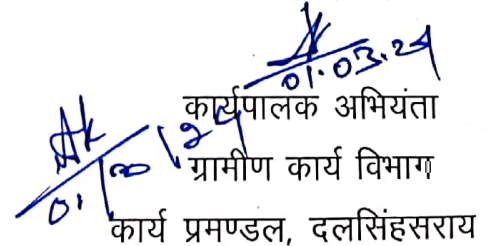 01.03.24
कार्यपालक अभियंता
ग्रामीण कार्य विभाग
कार्य प्रमण्डल, दलसिंहसराय